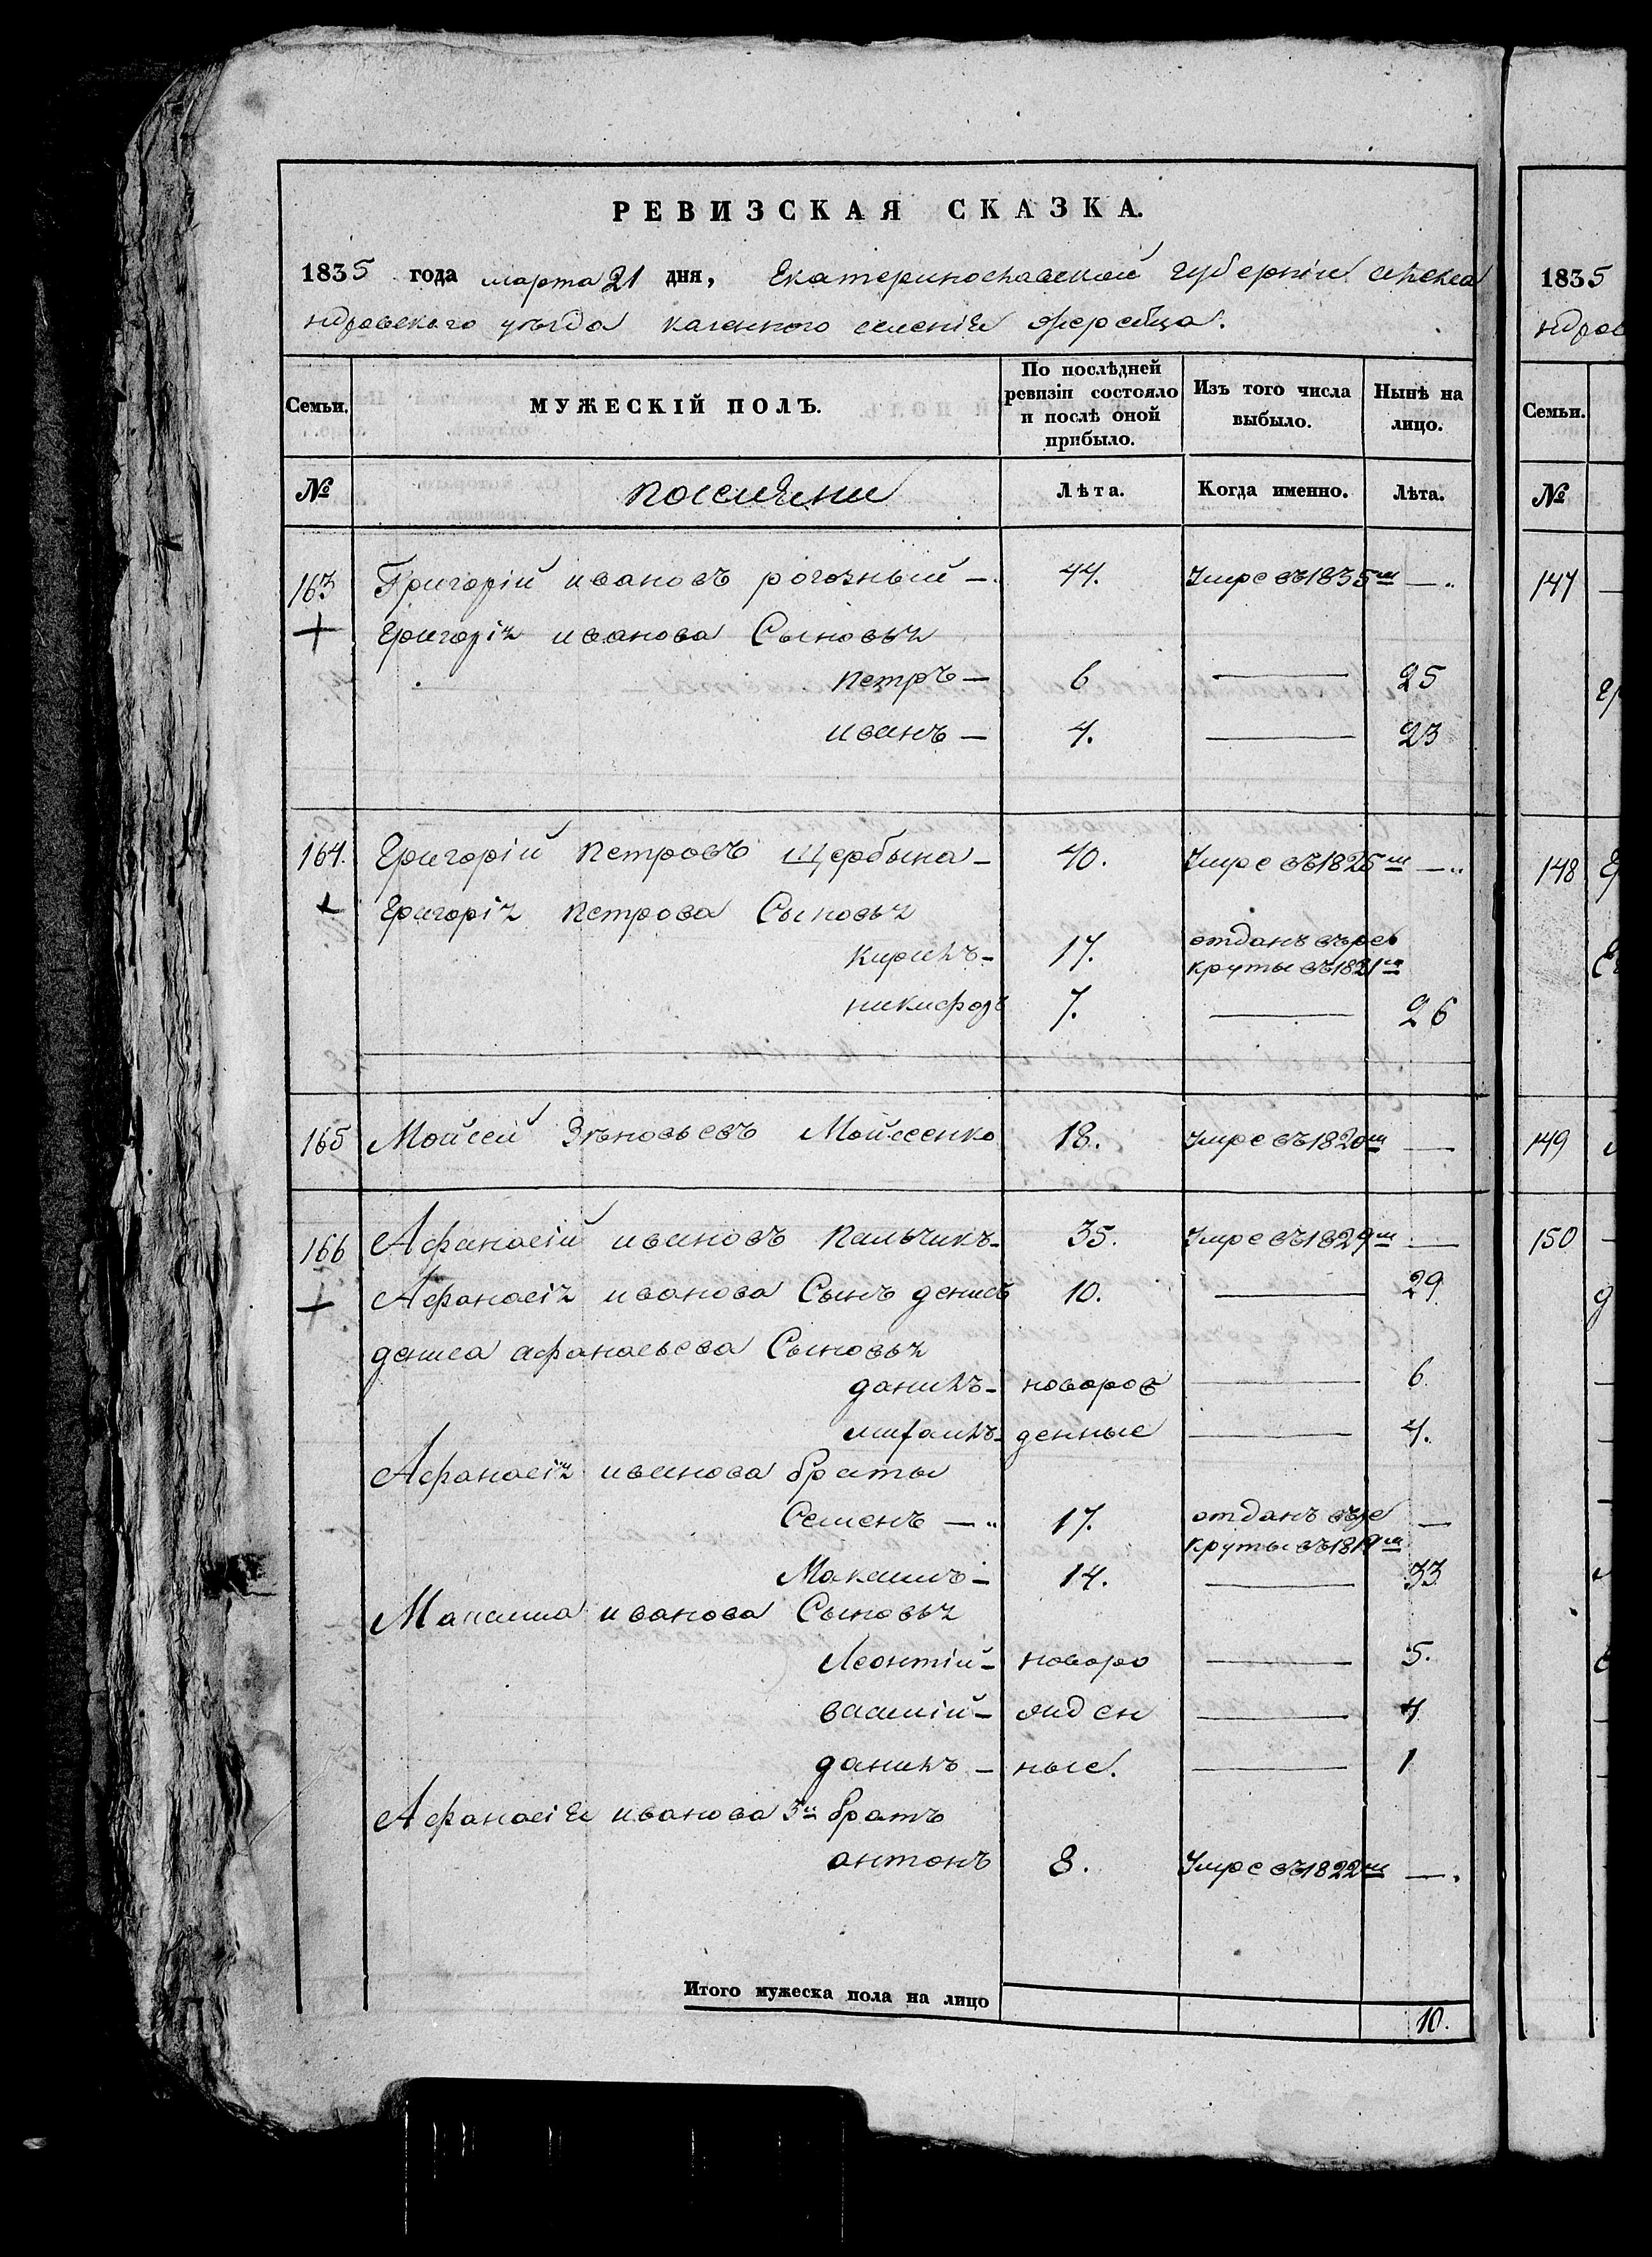 РЕВИЗСКАЯ СКАЗКА.
1835 года марта 21 дня, Екатеринославской губернии алекса
ндровского уъзда казенного селения жеребца.
Семьи. МУЖЕСКІЙ ПОЛЪ. По послѣдней ревизіи состояло и послѣ оной прибыло. Изъ того числа выбыло. Нынѣ на лицо.
№ поселяни Лѣта. Когда именно. Лѣта.
163 Григорій ивановъ рогозный — 44. Умре въ 1835м —
Григорія иванова Сыновья
петръ — 6 — 25
иванъ — 4. — 23
164. Григорій петровъ Щербына — 40. Умре въ 1825м —
Григорія петрова Сыновья
кирилъ — 17. отданъ въ ре
круты въ 1821м
никифоръ 7. — 26
165 Мойсей Зѣновьевъ Мойсеенко 18. Умре въ 1820м —
166 Афанасій ивановъ пальчикъ — 35. Умре въ 1829м —
Афанасія иванова Сынъ денисъ 10. — 29.
дениса афанасьева Сыновья
данилъ — новорож — 6.
михаилъ — денные — 4.
Афанасія иванова браты
Семенъ — 17. отданъ въ ре —
круты въ 1819м
Максимъ — 14. — 33
Максима иванова Сыновья
Леонтій — новоро — 5.
василій — жден — 4
данилъ — ные. — 1
Афанасія иванова 3й братъ
антонъ 8. Умре въ 1822м —
Итого мужеска пола на лицо 10.
1835
ндров
Семьи.
№
147
148
149
150